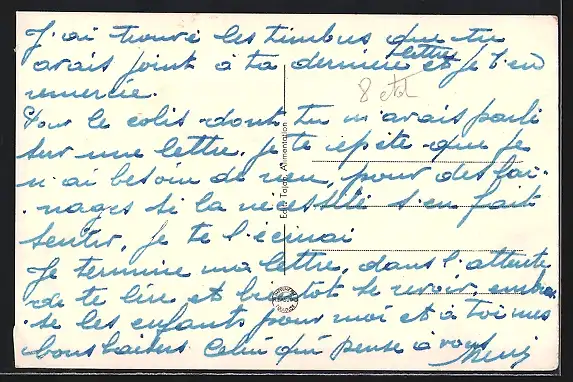 J'ai trouvé les timbres que tu
avais joint à ta dernière lettre et je t'en
remercie.
8 oct
Pour le colis dont tu m'avais parlé
sur une lettre. Je te repète que je
n'ai besoin de rien, pour des lai-
nages si la nécessité s'en fait
sentir, je te l'écrirai
Je termine ma lettre, dans l'attente
de te lire et bientot te revoir embras
se les enfants pour moi et à toi mes
bons baisers Celui qui pense à vous
Henri
Edit. Tajan, Alimentation